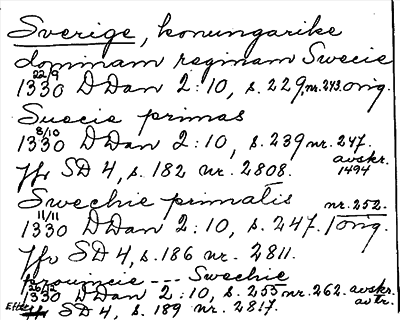 Sverige, konungarike
dominam reginam Swecie
22/9
1330 DDan 2:10, s. 229, nr. 243. orig.
Suecie primas
8/10
1330 DDan 2:10, s. 239 nr. 247.
avskr.
1494
Jfr SD 4, s. 182 nr. 2808.
Swechie primatis nr. 252.
11/11
1330 DDan 2:10, s. 247. orig.
Jfr SD 4, s. 186 nr. 2811.
prouincie --- Swechie
1330 DDan 2:10, s. 255 nr. 262. avskr.
avtr.
Efter SD 4, s. 189 nr. 2817.